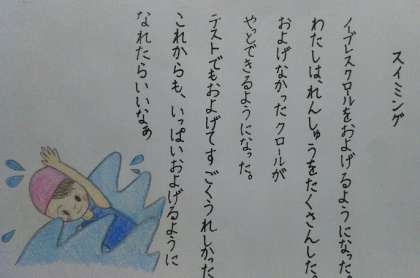 スイミング
イブレスクロールをおよげるようになった
わたしは、れんしゅうをたくさんした
およげなかったクロールが
やっとできるようになった。
テストでもおよげてすごくうれしかった
これからも、いっぱいおよげるように
なれたらいいなぁ